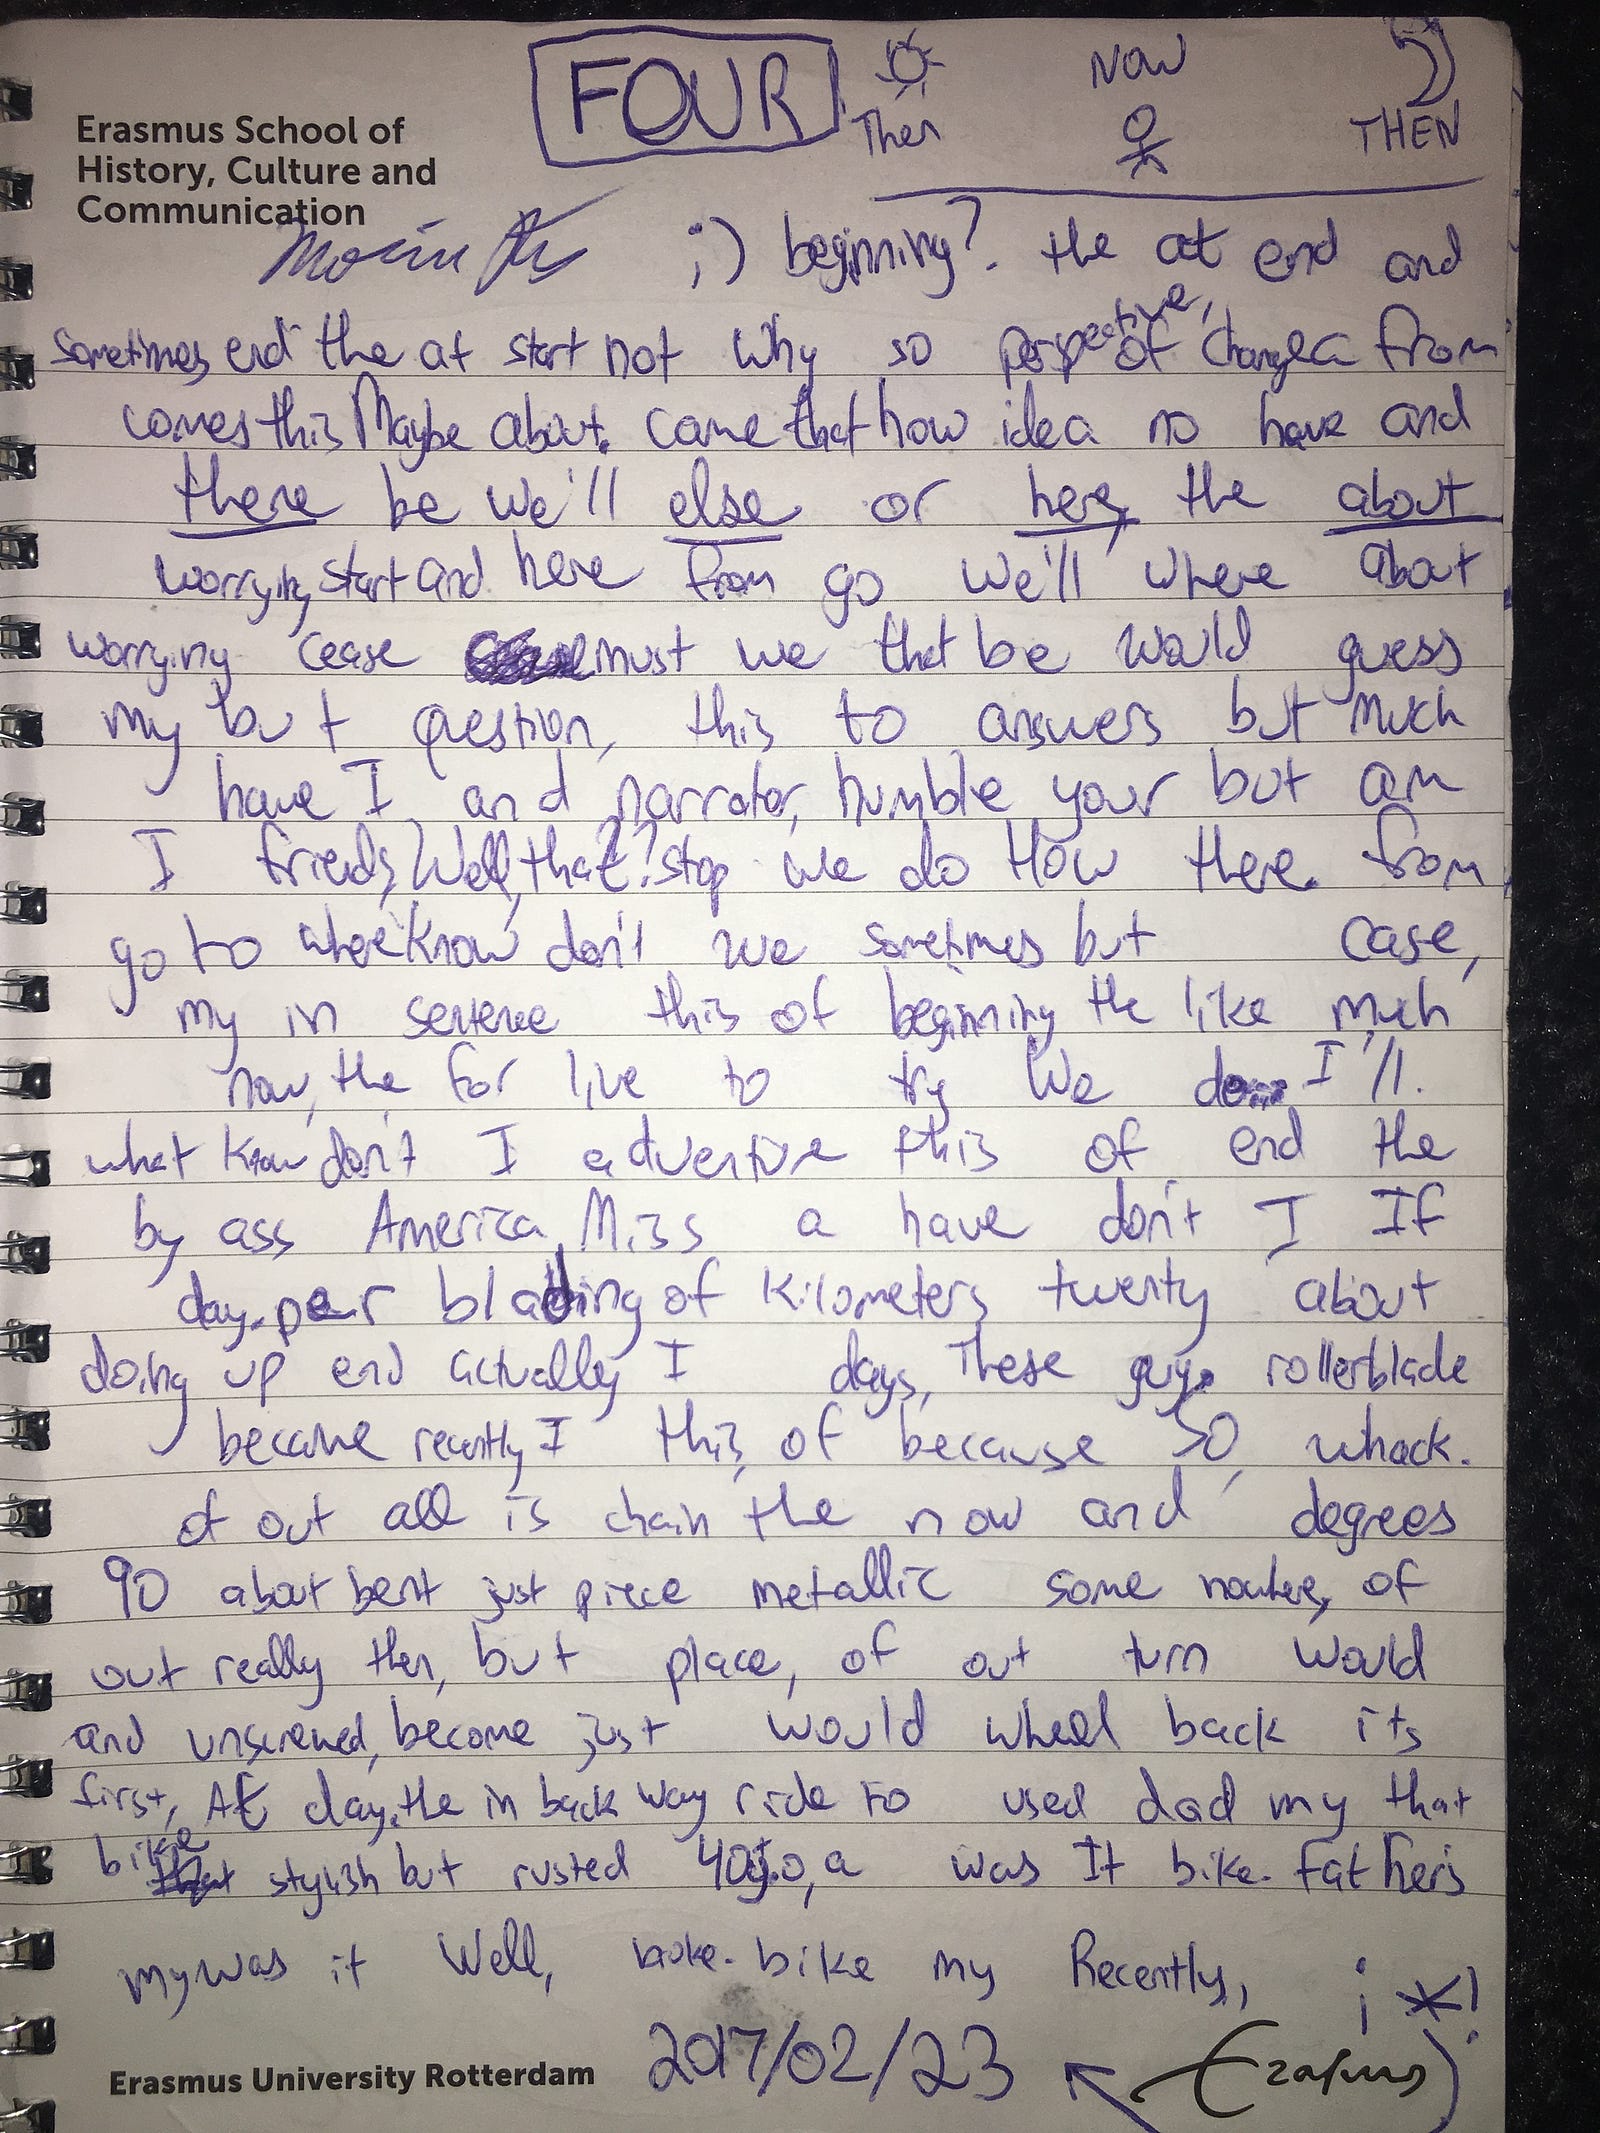 FOUR
Then NOW THEN
Erasmus School of
History, Culture and
Communication
;) beginning? the at end and
sometimes, end the at start not why so perspective, of change a from
comes this Maybe about. came that how idea no have and
there be we'll else or here, the about
worrying, start and here from go we'll where about
worrying cease must we that be would guess
my but question, this to answers but much
have I and narrator, humble your but am
I friends, Well, that? stop we do How there. from
go to where know don't we sometimes but case,
my in sentence this of beginning the like much
now, the for live to try We do... I'll.
what know don't I adventure this of end the
by ass America Miss a have don't I If
day. per blading of kilometers twenty about
doing up end actually I days, These guy. rollerblade
became recently I this, of because So, whack.
of out all is chain the now and degrees
90 about bent just piece metallic some nowhere, of
out really then, but place, of out turn would
and unscrewed, become just would wheel back its
first, At day. the in back way ride to used dad my that
bike stylish but rusted a was It bike. father's
my was it Well, broke. bike my Recently, ¡ *!
Erasmus University Rotterdam 2017/02/23 (Erasmus)